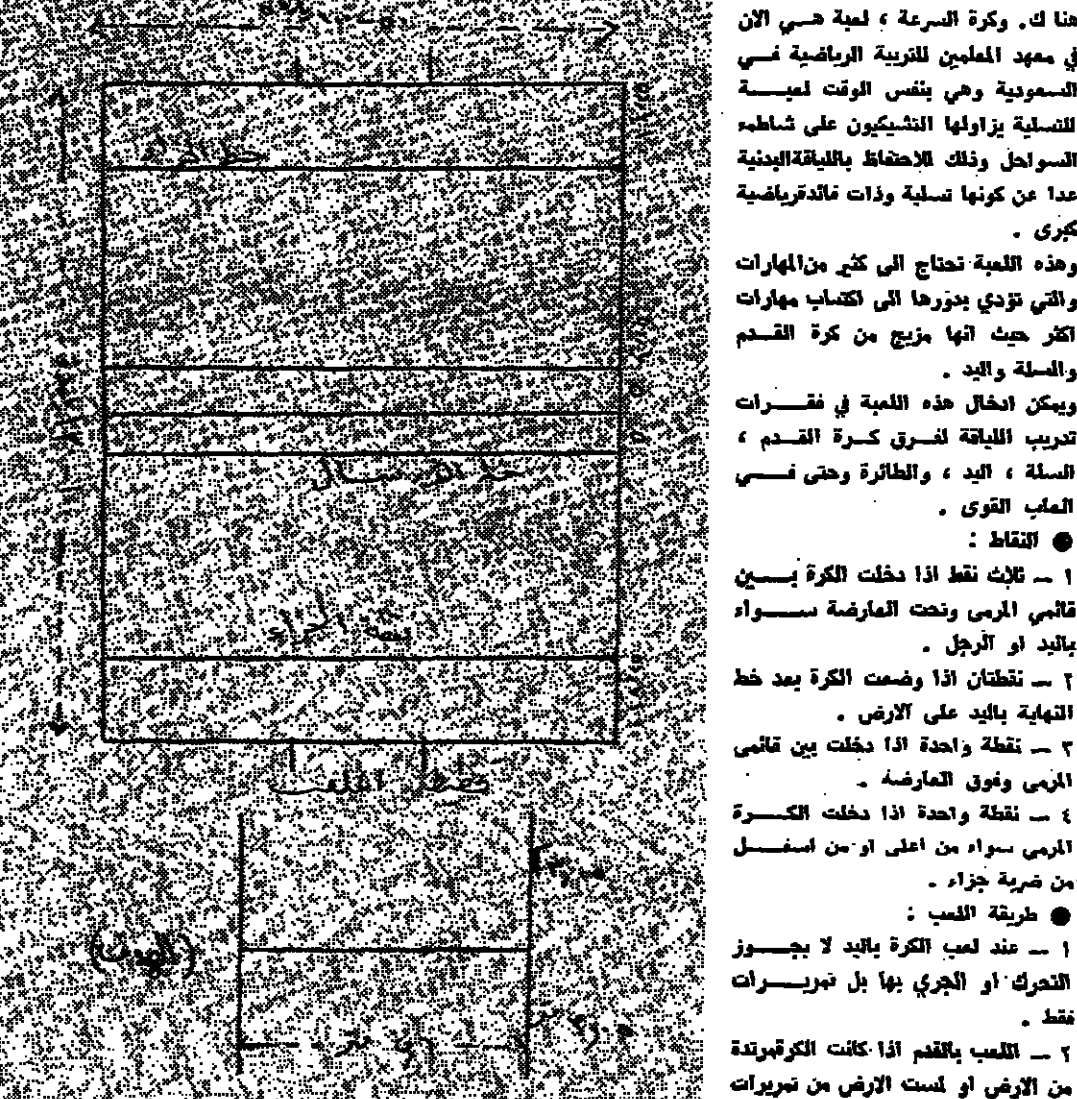 هنا ك. وكرة السرعة ، لعبة هـــي الان
في معهد المعلمين للتربية الرياضية فـــي
السعودية وهي بنفس الوقت لعبـــــة
للتسلية يزاولها التشيكيون على شاطىء
السواحل وذلك للاحتفاظ باللياقةالبدنية
عدا عن كونها تسلية وذات فائدةرياضية
كبرى .
وهذه اللعبة تحتاج الى كثير منالمهارات
والتي تؤدي بدورها الى اكتساب مهارات
اكثر حيث انها مزيج من كرة القـــدم
والسلة واليد .
ويمكن ادخال هذه اللعبة في فقـــــرات
تدريب اللياقة لفـــرق كـــرة القـــدم ،
السلة ، اليد ، والطائرة وحتى فـــــي
العاب القوى .
● النقاط :
١ ـ ثلاث نقط اذا دخلت الكرة بـــــين
قائمي المرمى وتحت العارضة ســــواء
باليد او الرجل .
٢ ـ نقطتان اذا وضعت الكرة بعد خط
النهاية باليد على الارض .
٣ ـ نقطة واحدة اذا دخلت بين قائمى
المرمى وفوق العارضة .
٤ ـ نقطة واحدة اذا دخلت الكـــــرة
المرمى سواء من اعلى او من اسفـــــل
من ضربة جزاء .
● طريقة اللعب :
١ ـ عند لعب الكرة باليد لا يجـــــوز
التحرك او الجري بها بل تمريـــــرات
فقط .
٢ ـ اللعب بالقدم اذا كانت الكرةمرتدة
من الارض او لمست الارض من تمريرات
خط الجزاء
خط
الجزاء
(الهدف)